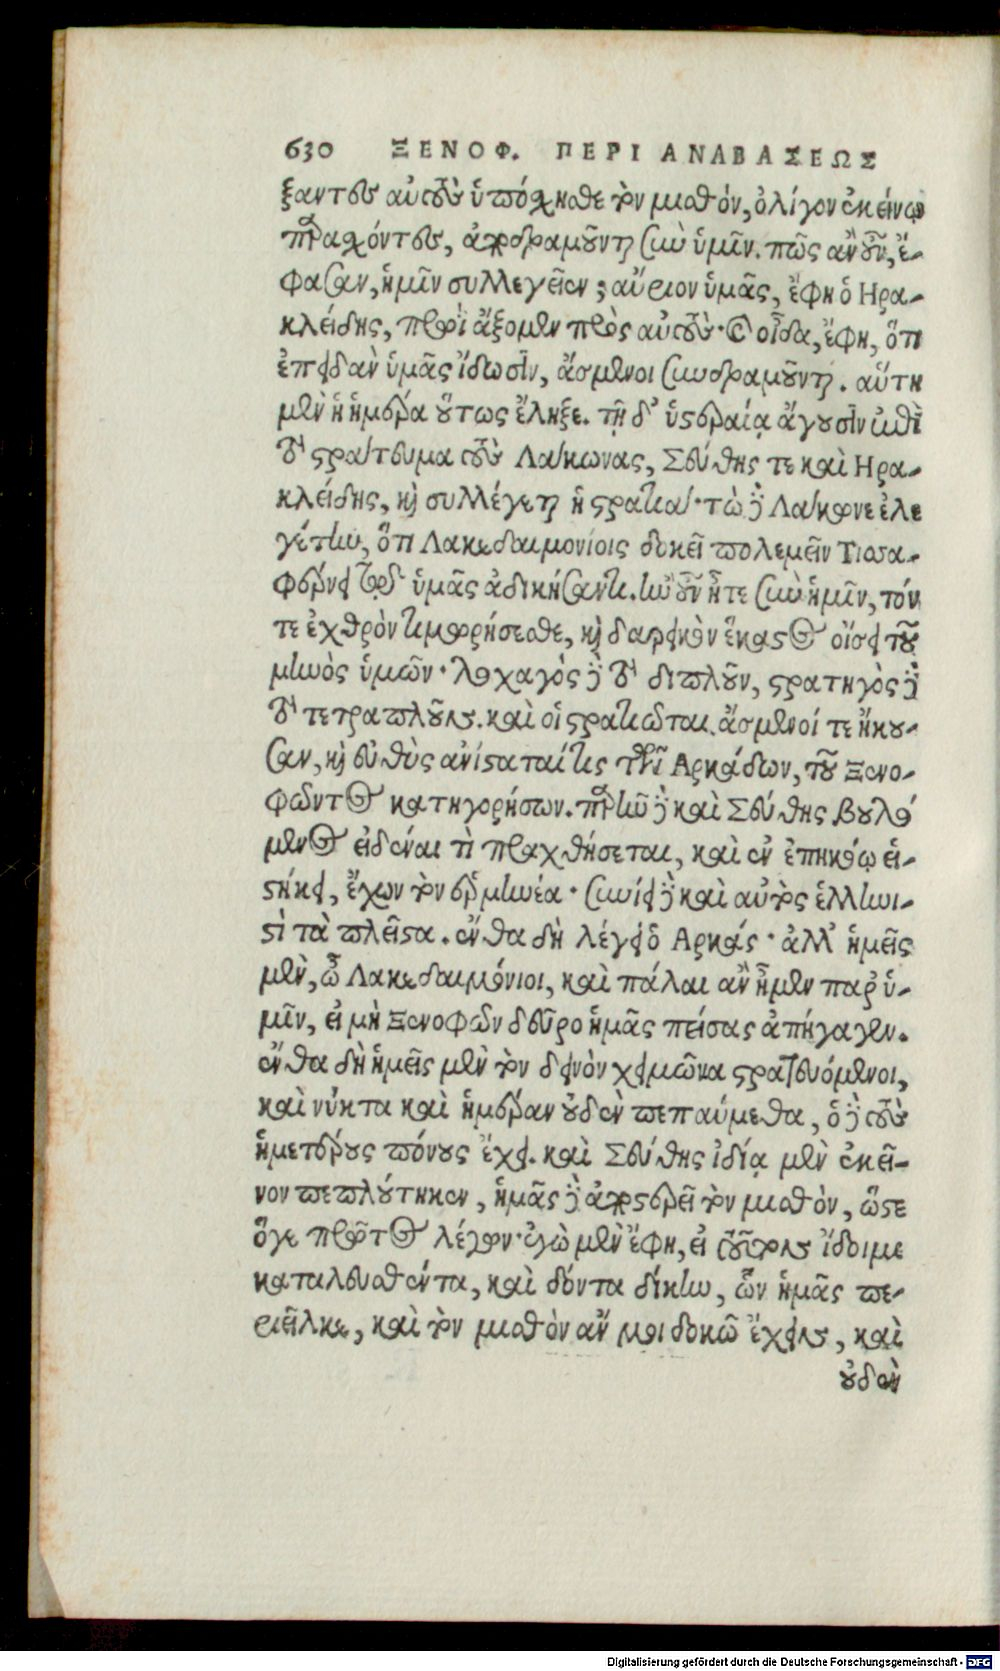 630 ΞΕΝΟΦ. ΠΕΡΙ ΑΝΑΒΑΣΕΩΣ
ξαντες αὐτοὺς ὑπόσχησθε τὸν μισθόν, ὀλίγον ἐκείνῳ
παρασχόντες, ἀποδραμοῦνται σὺν ὑμῖν. πῶς ἂν οὖν, ἔ-
φασαν, ἡμῖν συλλεγεῖεν; αὔριον ὑμᾶς, ἔφη ὁ Ηρα-
κλείδης, πρωῒ ἄξομεν πρὸς αὐτούς· καὶ οἶδα, ἔφη, ὅτι
ἐπειδὰν ὑμᾶς ἴδωσιν, ἄσμενοι συνδραμοῦνται. αὕτη
μὲν ἡ ἡμέρα οὕτως ἔληξε. τῇ δ' ὑστεραίᾳ ἄγουσιν ἐπὶ
τὸ στράτευμα τοὺς Λάκωνας, Σεύθης τε καὶ Ηρα-
κλείδης, καὶ συλλέγεται ἡ στρατιά· τὼ δὲ Λάκωνε ἐλε
γέτην, ὅτι Λακεδαιμονίοις δοκεῖ πολεμεῖν Τισσα-
φέρνει τῷ ὑμᾶς ἀδικήσαντι. ἢν οὖν ἦτε σὺν ἡμῖν, τόν
τε ἐχθρὸν τιμωρήσεσθε, καὶ δαρεικὸν ἕκαστος οἴσει τοῦ
μηνὸς ὑμῶν· λοχαγὸς δὲ τὸ διπλοῦν, στρατηγὸς δὲ
τὸ τετραπλοῦν. καὶ οἱ στρατιῶται ἄσμενοί τε ἤκου-
σαν, καὶ εὐθὺς ἀνίσταταί τις τῶν Αρκάδων, τοῦ Ξενο-
φῶντος κατηγορήσων. παρῆν δὲ καὶ Σεύθης βουλό
μενος εἰδέναι τὶ πραχθήσεται, καὶ ἐν ἐπηκόῳ εἱ-
στήκει, ἔχων τὸν ἑρμηνέα· συνίει δὲ καὶ αὐτὸς ἑλληνι-
στὶ τὰ πλεῖστα. ἔνθα δὴ λέγει ὁ Αρκάς· ἀλλ' ἡμεῖς
μὲν, ὦ Λακεδαιμόνιοι, καὶ πάλαι ἂν ἦμεν παρ' ὑ-
μῖν, εἰ μὴ Ξενοφῶν δεῦρο ἡμᾶς πείσας ἀπήγαγεν.
ἔνθα δὴ ἡμεῖς μὲν τὸν δεινὸν χειμῶνα στρατευόμενοι,
καὶ νύκτα καὶ ἡμέραν οὐδὲν πεπαύμεθα, ὁ δὲ τοὺς
ἡμετέρους πόνους ἔχει. καὶ Σεύθης ἰδίᾳ μὲν ἐκεῖ-
νον πεπλούτηκεν, ἡμᾶς δὲ ἀποστερεῖ τὸν μισθὸν, ὥστε
ὅγε πρῶτος λέγων· ἐγὼ μὲν ἔφη, εἰ τοῦτον ἴδοιμι
καταλευσθέντα, καὶ δόντα δίκην, ὧν ἡμᾶς πε-
ριεῖλκε, καὶ τὸν μισθὸν ἄν μοι δοκῶ ἔχειν, καὶ
οὐδὲν
Digitalisierung gefördert durch die Deutsche Forschungsgemeinschaft - DFG